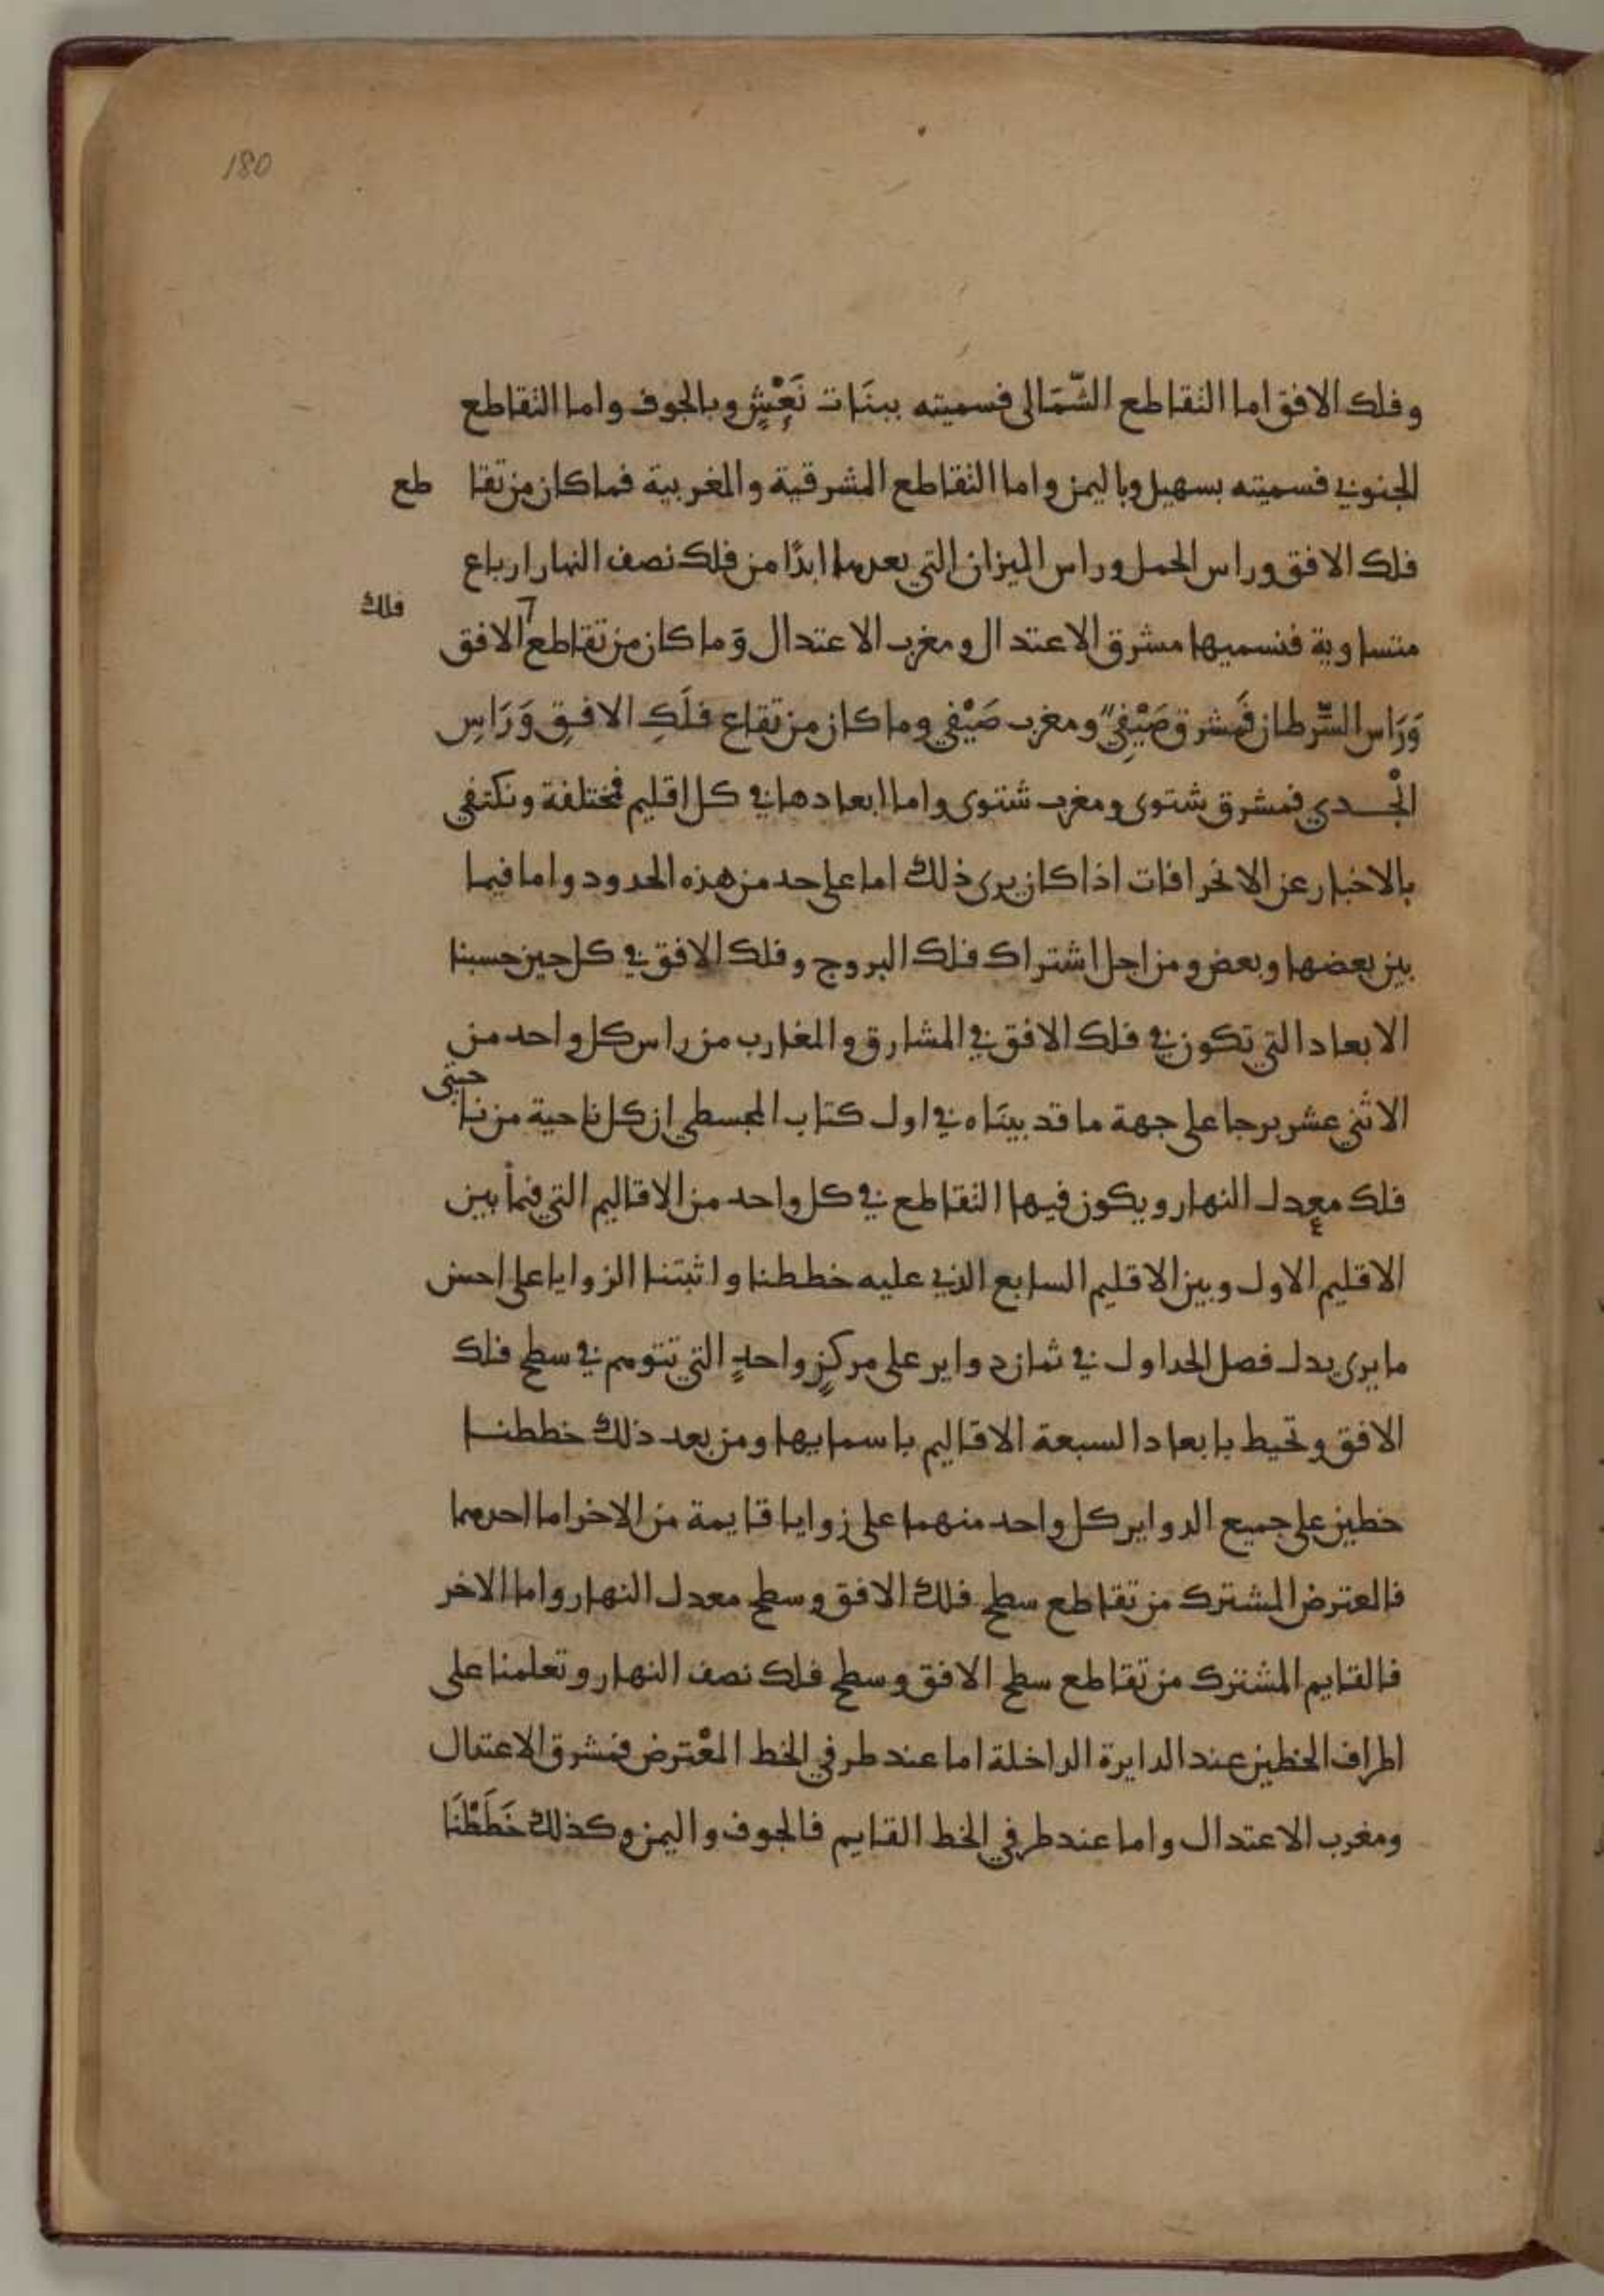 180
وفلك الافق اما التقاطع الشّمَالى فسميته ببنَات نَعْشٍ وبالجوف واما التقاطع
الجنوبي فسميته بسهيل وباليمن واما التقاطع المشرقية والمغربية فما كان من تقا طع
فلك الافق وراس الحمل وراس الميزان التي بعدهما ابدًا من فلك نصف النهار ارباع
متساوية فنسميها مشرق الاعتدال ومغرب الاعتدال وَما كان من تقاطع فلك الافق
وَرَاس السَّرطان فَمشرق صَيْفِي ومغرب صَيْفي وما كان من تقاع فلَكِ الافقِ وَرَاسِ
الْجدي فمشرق شتوى ومغرب شتوى واما ابعادها في كل اقليم فمختلفة ونكتفى
بالاخبار عن الانحرافات اذا كان يرى ذلك اما على حد من هذه الحدود واما فيما
بين بعضها وبعض ومن اجل اشتراك فلك البروج وفلك الافق في كل حين حسبنا
الابعاد التي تكون في فلك الافق في المشارق والمغارب من راس كل واحد من
الاثني عشر برجا على جهة ما قد بينَاه في اول كتاب المجسطي ان كل ناحية من نا حيتى
فلك معدل النهار ويكون فيها التقاطع في كل واحد من الاقاليم التي فيما بين
الاقليم الاول وبين الاقليم السابع الذي عليه خططنا واثبتنا الزوايا على احسن
ما يرى بدل فصل الجداول في ثمان دواير على مركزٍ واحدٍ التي تتوهم في سطح فلك
الافق وتحيط بابعاد السبعة الاقاليم باسمايها ومن بعد ذلك خططنا
خطين على جميع الدواير كل واحد منهما على زوايا قايمة من الاخر اما احدهما
فالعترض المشترك من تقاطع سطح فلك الافق وسطح معدل النهار واما الاخر
فالقايم المشترك من تقاطع سطح الافق وسطح فلك نصف النهار وتعلمنا على
اطراف الخطين عند الدايرة الداخلة اما عند طرفي الخط المعْترض فمشرق الاعتدال
ومغرب الاعتدال واما عند طرفي الخط القايم فالجوف واليمن وكذلك خَطَطْنَا